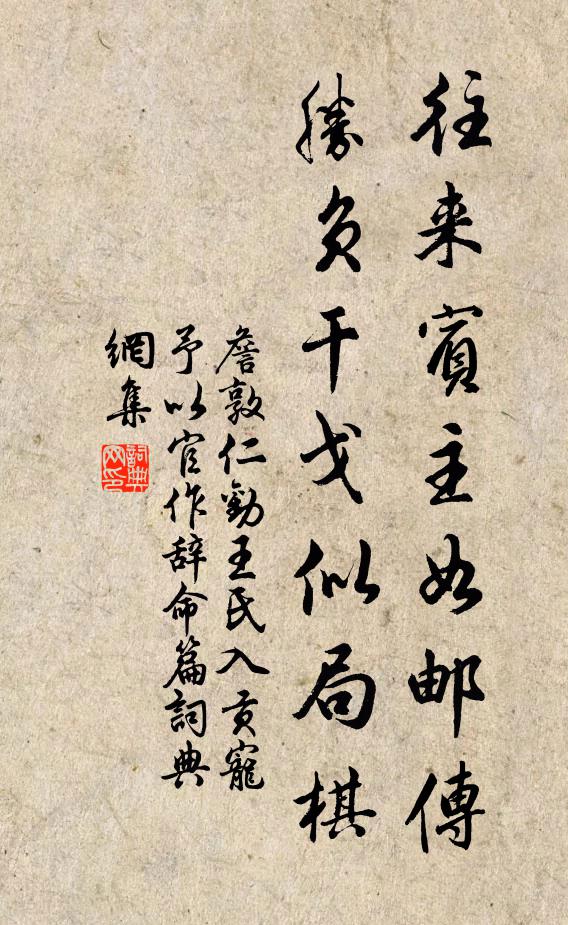 往来賓主如邮傳
勝负干戈似局棋
詹敦仁勸王氏入贡寵
予以官作辞命篇詞典
網集
詞典
网印